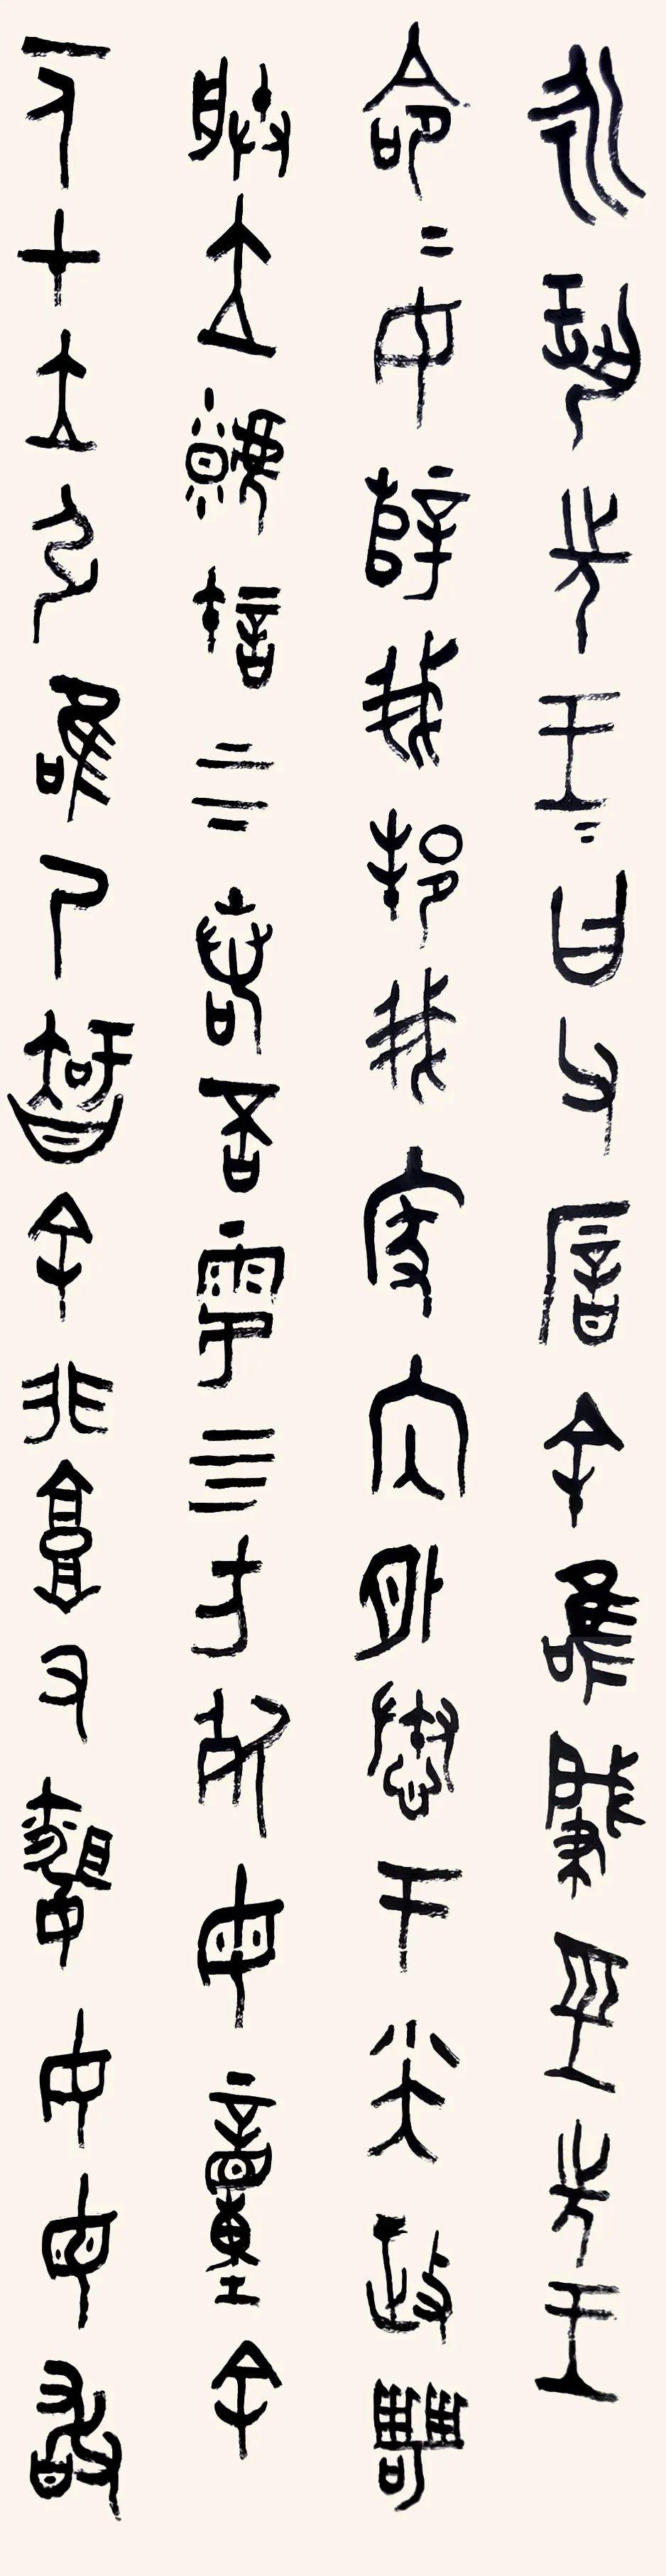 永巩先王=曰父厝余唯肇巠先王
命=女辥我邦我家内外惷于小大政甹
朕立虩許上下若否雩四方死母童余
一人才立引唯乃智余非庸又昏女母敢